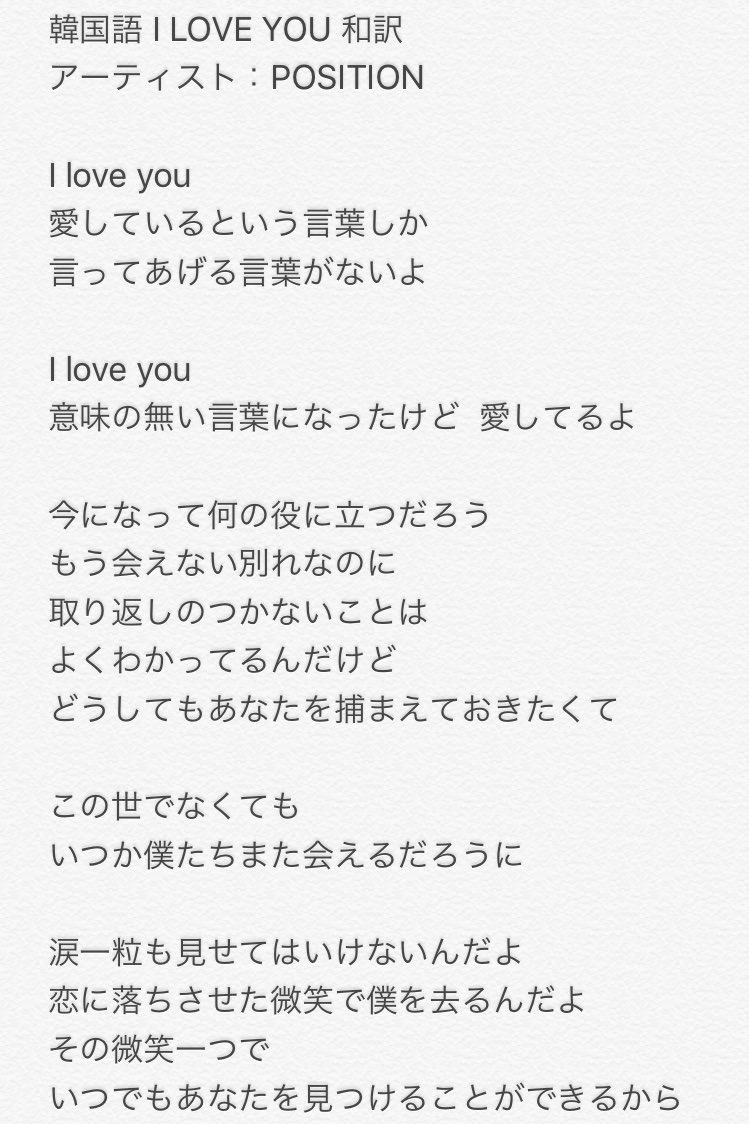 韓国語 I LOVE YOU 和訳
アーティスト：POSITION
I love you
愛しているという言葉しか
言ってあげる言葉がないよ
I love you
意味の無い言葉になったけど 愛してるよ
今になって何の役に立つだろう
もう会えない別れなのに
取り返しのつかないことは
よくわかってるんだけど
どうしてもあなたを捕まえておきたくて
この世でなくても
いつか僕たちまた会えるだろうに
涙一粒も見せてはいけないんだよ
恋に落ちさせた微笑で僕を去るんだよ
その微笑一つで
いつでもあなたを見つけることができるから